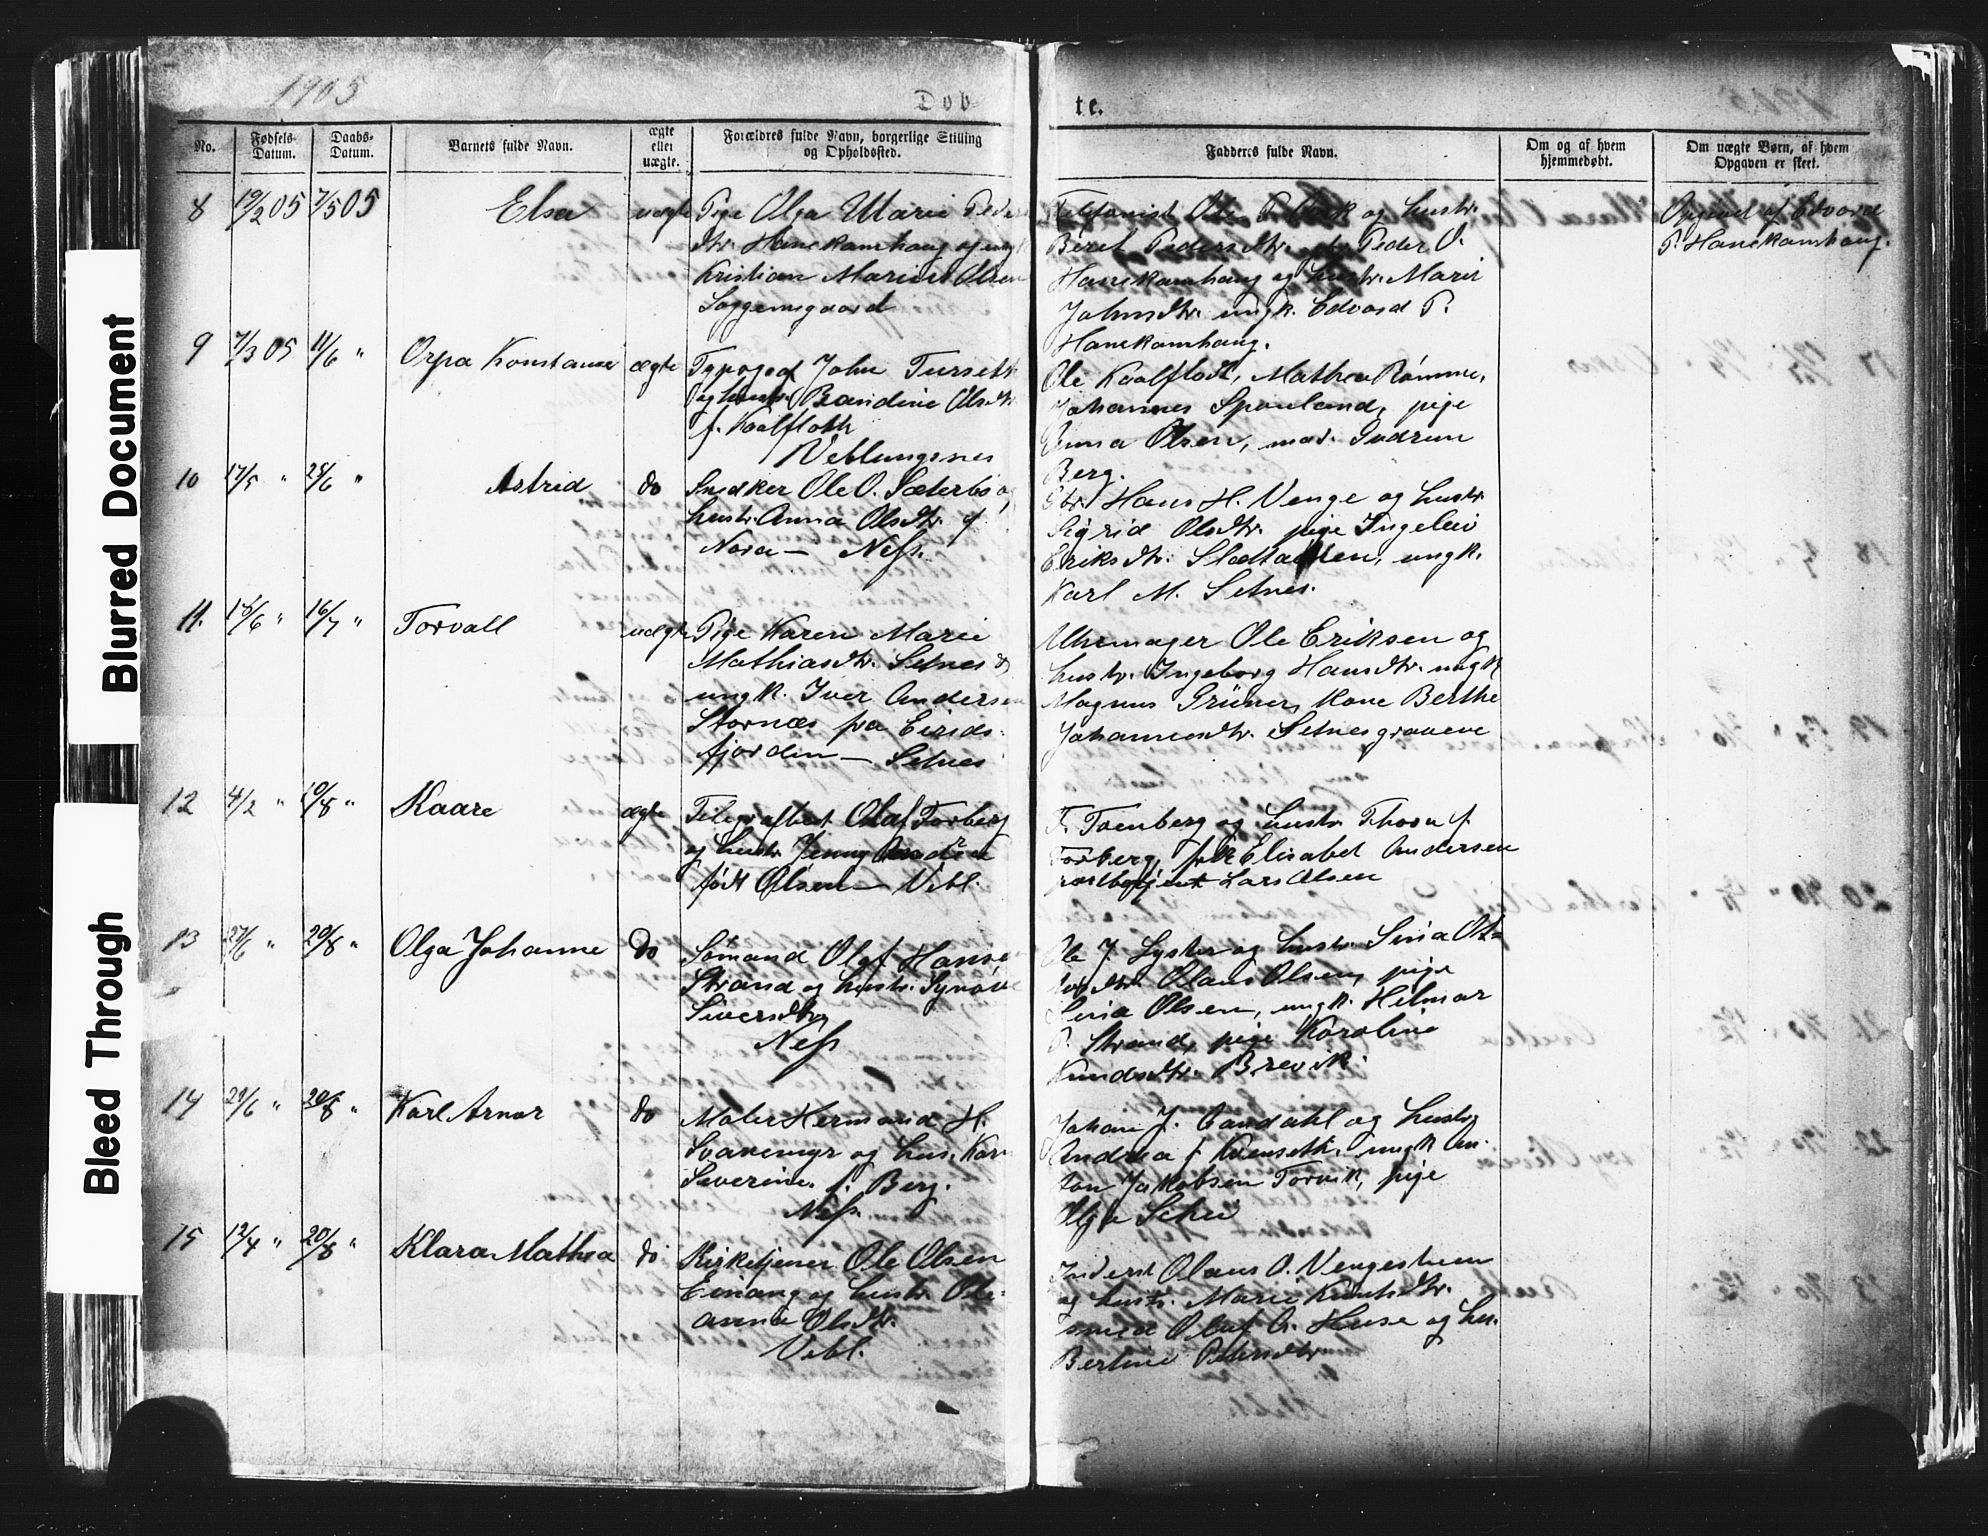 1905
Døb
te.
No.
Fødsels-Datum.
Daabs-Datum.
Barnets fulde Navn.
ægte eller uægte.
Forældres fulde Navn, borgerlige Stilling og Opholdssted.
Fadderes fulde Navn.
Om og af hvem hjemmedøbt.
Om uægte Børn, af hvem Opgaven er skeet.
8 19/2 05 7/5 05 Elsa uægte Pige Olga Marie Peders
dtr. Hanekamhaug og ungk.
Kristian Marius Olsen
Soggemsgaard
Telefonist Ole P. og hustr.
Beret Pedersdtr. Peder O.
Hanekamhaug og hustr. Marit
Johnsdtr. ungk. Edvard P.
Hanekamhaug.
Opgivet af Edvard
P. Hanekamhaug.
9 7/3 05 11/6 " Orpa Konstanse ægte Typograf John Tursett
og hustr. Randine Olsdtr.
f. Kaalfloth
Veblungsnes
Ole Kaalflodt, Mathea Rømme,
Johannes Sponland, pige
Anna Olsen, mad. Gudrun
Berg.
10 17/5 " 25/6 " Astrid do Snedker Ole O. Sæterbø og
hustr. Anna Olsdtr. f.
Nora — Ness.
Hans H. Venge og hustr.
Sigrid Olsdtr. pige Ingeleiv
Eriksdtr. ungk.
Karl M. Setnes.
11. 15/6 " 16/7 " Torvall uægte Pige Karen Marie
Mathiasdtr. Setnes og
ungk. Iver Andersen
Stornæs fra Eirids-
fjorden — Setnes
Uhrmager Ole Eriksen og
hustr. Ingeborg Hansdtr. ungk.
Magnus Grüner, kone Berthe
Johannesdtr. Setnesgravene
12 4/2 " 10/8 " Kaare ægte Telegrafbest. Olaf Torberg
og hustr. Jenny
født Olsen — Vebl.
F. Tornberg og hustr. Thora f.
Torberg, frk Elisabet Andersen
postbetjent Lars Olsen
13 27/6 " 20/8 " Olga Johanne do Sømand Olaf Hansen
Strand og hustr. Synøve
Siversdtr.
Ness
Ole J. Lyster og hustr. Sina
Olaus Olsen, pige
Sina Olsen, ungk. Helmar
P. Strand, pige Karoline
Knudsdtr. Brevik
14 29/6 " 20/8 " Karl Arnar do Maler Hermand H.
Svanemyr og hus. Kar
Severine f. Berg.
Ness.
Johan J. Aandahl og hustr.
Andrea f. ungk. An-
ton Jakobsen Torvik, pige
Olga Schei
15 12/4 " 20/8 " Klara Mathea do Kirketjener Ole Olsen
Einang og hustr. Ole-
anna Olsdtr.
Vebl.
Inderst Olaus O. Vengestuen
og hustr. Marie Knutsdtr.
smed Olaf A. Huse og hu.
Bertine Petersdtr
Blurred Document
Bleed Through